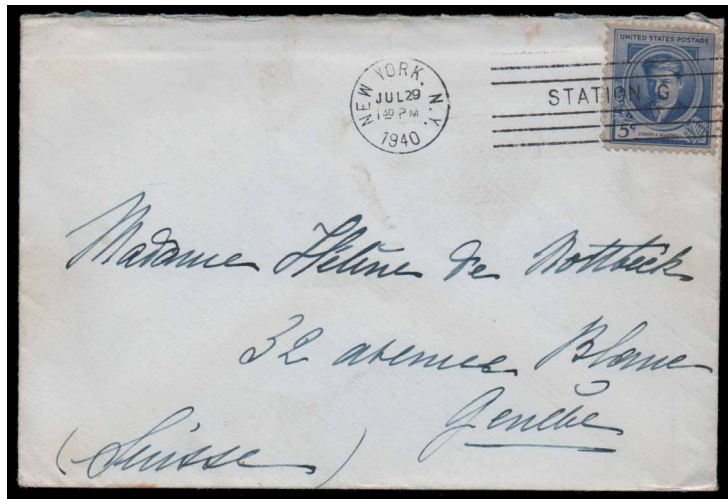 NEW YORK, N.Y.
JUL 29
1 30 PM
1940
STATION G
UNITED STATES POSTAGE
5¢
Madame Hélène de Nottbeck
32 avenue Blanc
Genève
(Suisse)